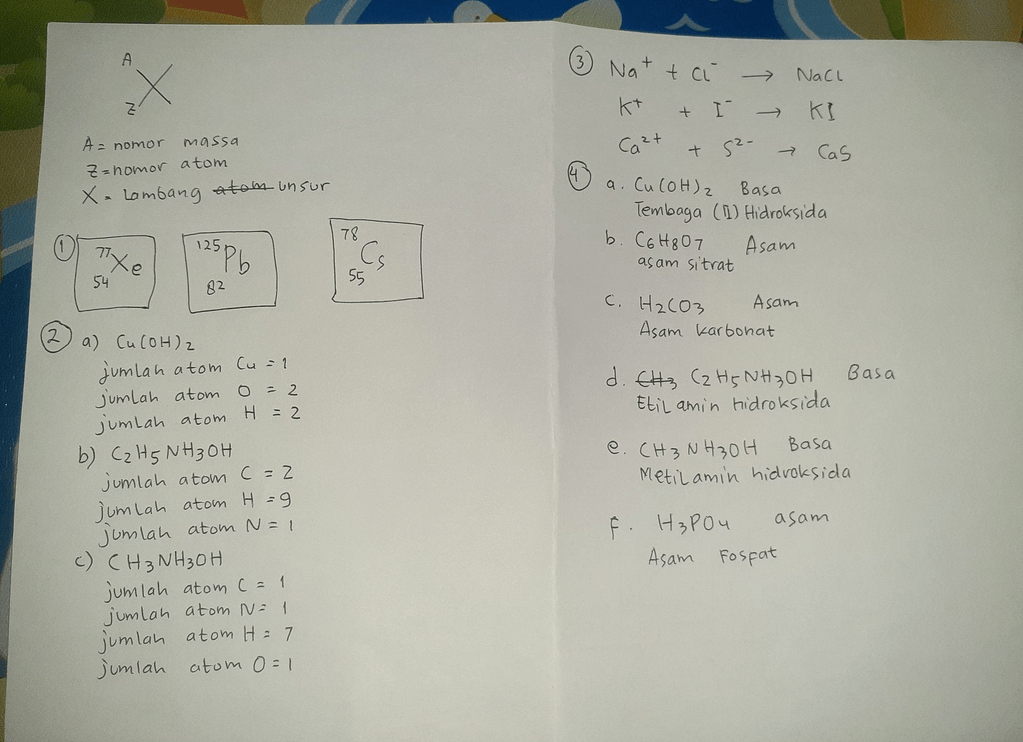 A
X
Z
A = nomor massa
Z = nomor atom
X = Lambang atom unsur
① 77 Xe 54 125 Pb 82 78 Cs 55
② a) Cu(OH)2
jumlah atom Cu = 1
jumlah atom O = 2
jumlah atom H = 2
b) C2H5NH3OH
jumlah atom C = 2
jumlah atom H = 9
jumlah atom N = 1
c) CH3NH3OH
jumlah atom C = 1
jumlah atom N = 1
jumlah atom H = 7
jumlah atom O = 1
③ Na⁺ + Cl⁻ → NaCl
K⁺ + I⁻ → KI
Ca²⁺ + S²⁻ → CaS
④ a. Cu(OH)2 Basa
Tembaga (II) Hidroksida
b. C6H8O7 Asam
asam sitrat
c. H2CO3 Asam
Asam karbonat
d. CH3 C2H5NH3OH Basa
Etil amin hidroksida
e. CH3NH3OH Basa
Metil amin hidroksida
f. H3PO4 asam
Asam Fosfat